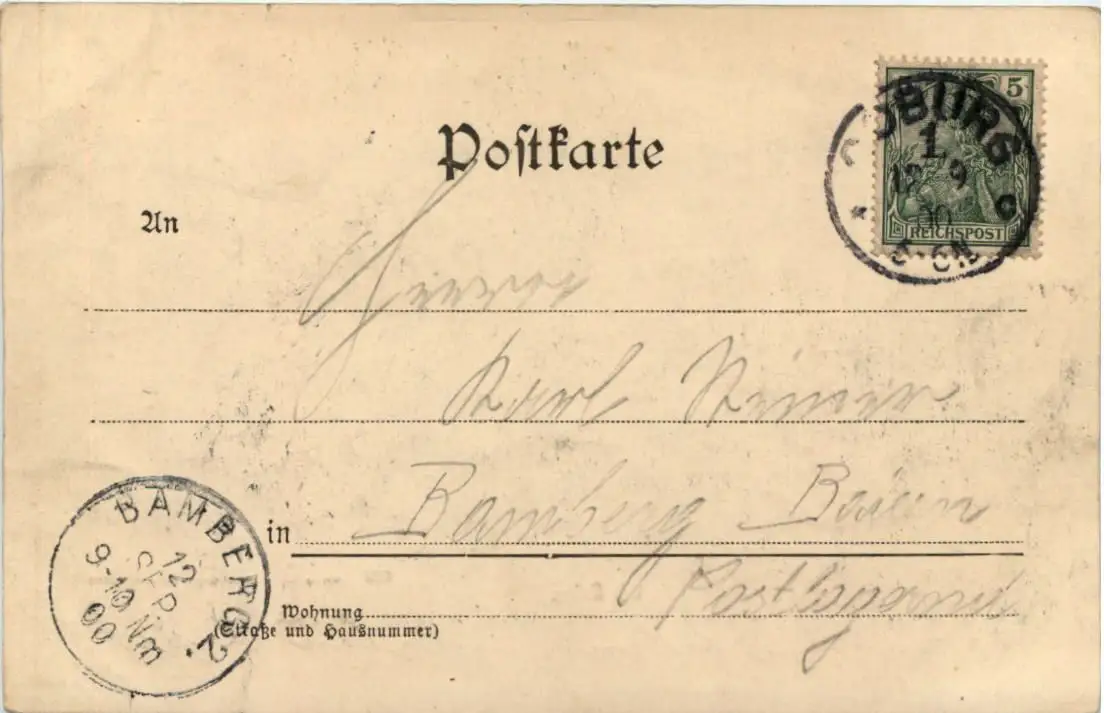 Postkarte
5
COBURG
1.
12 9
00
5-6N
* c
REICHSPOST
An
Herrn
Karl
in Bamberg Baiern
Postlagernd
Wohnung
(Straße und Hausnummer)
BAMBERG 2.
12
SEP
9-10 Nm
00